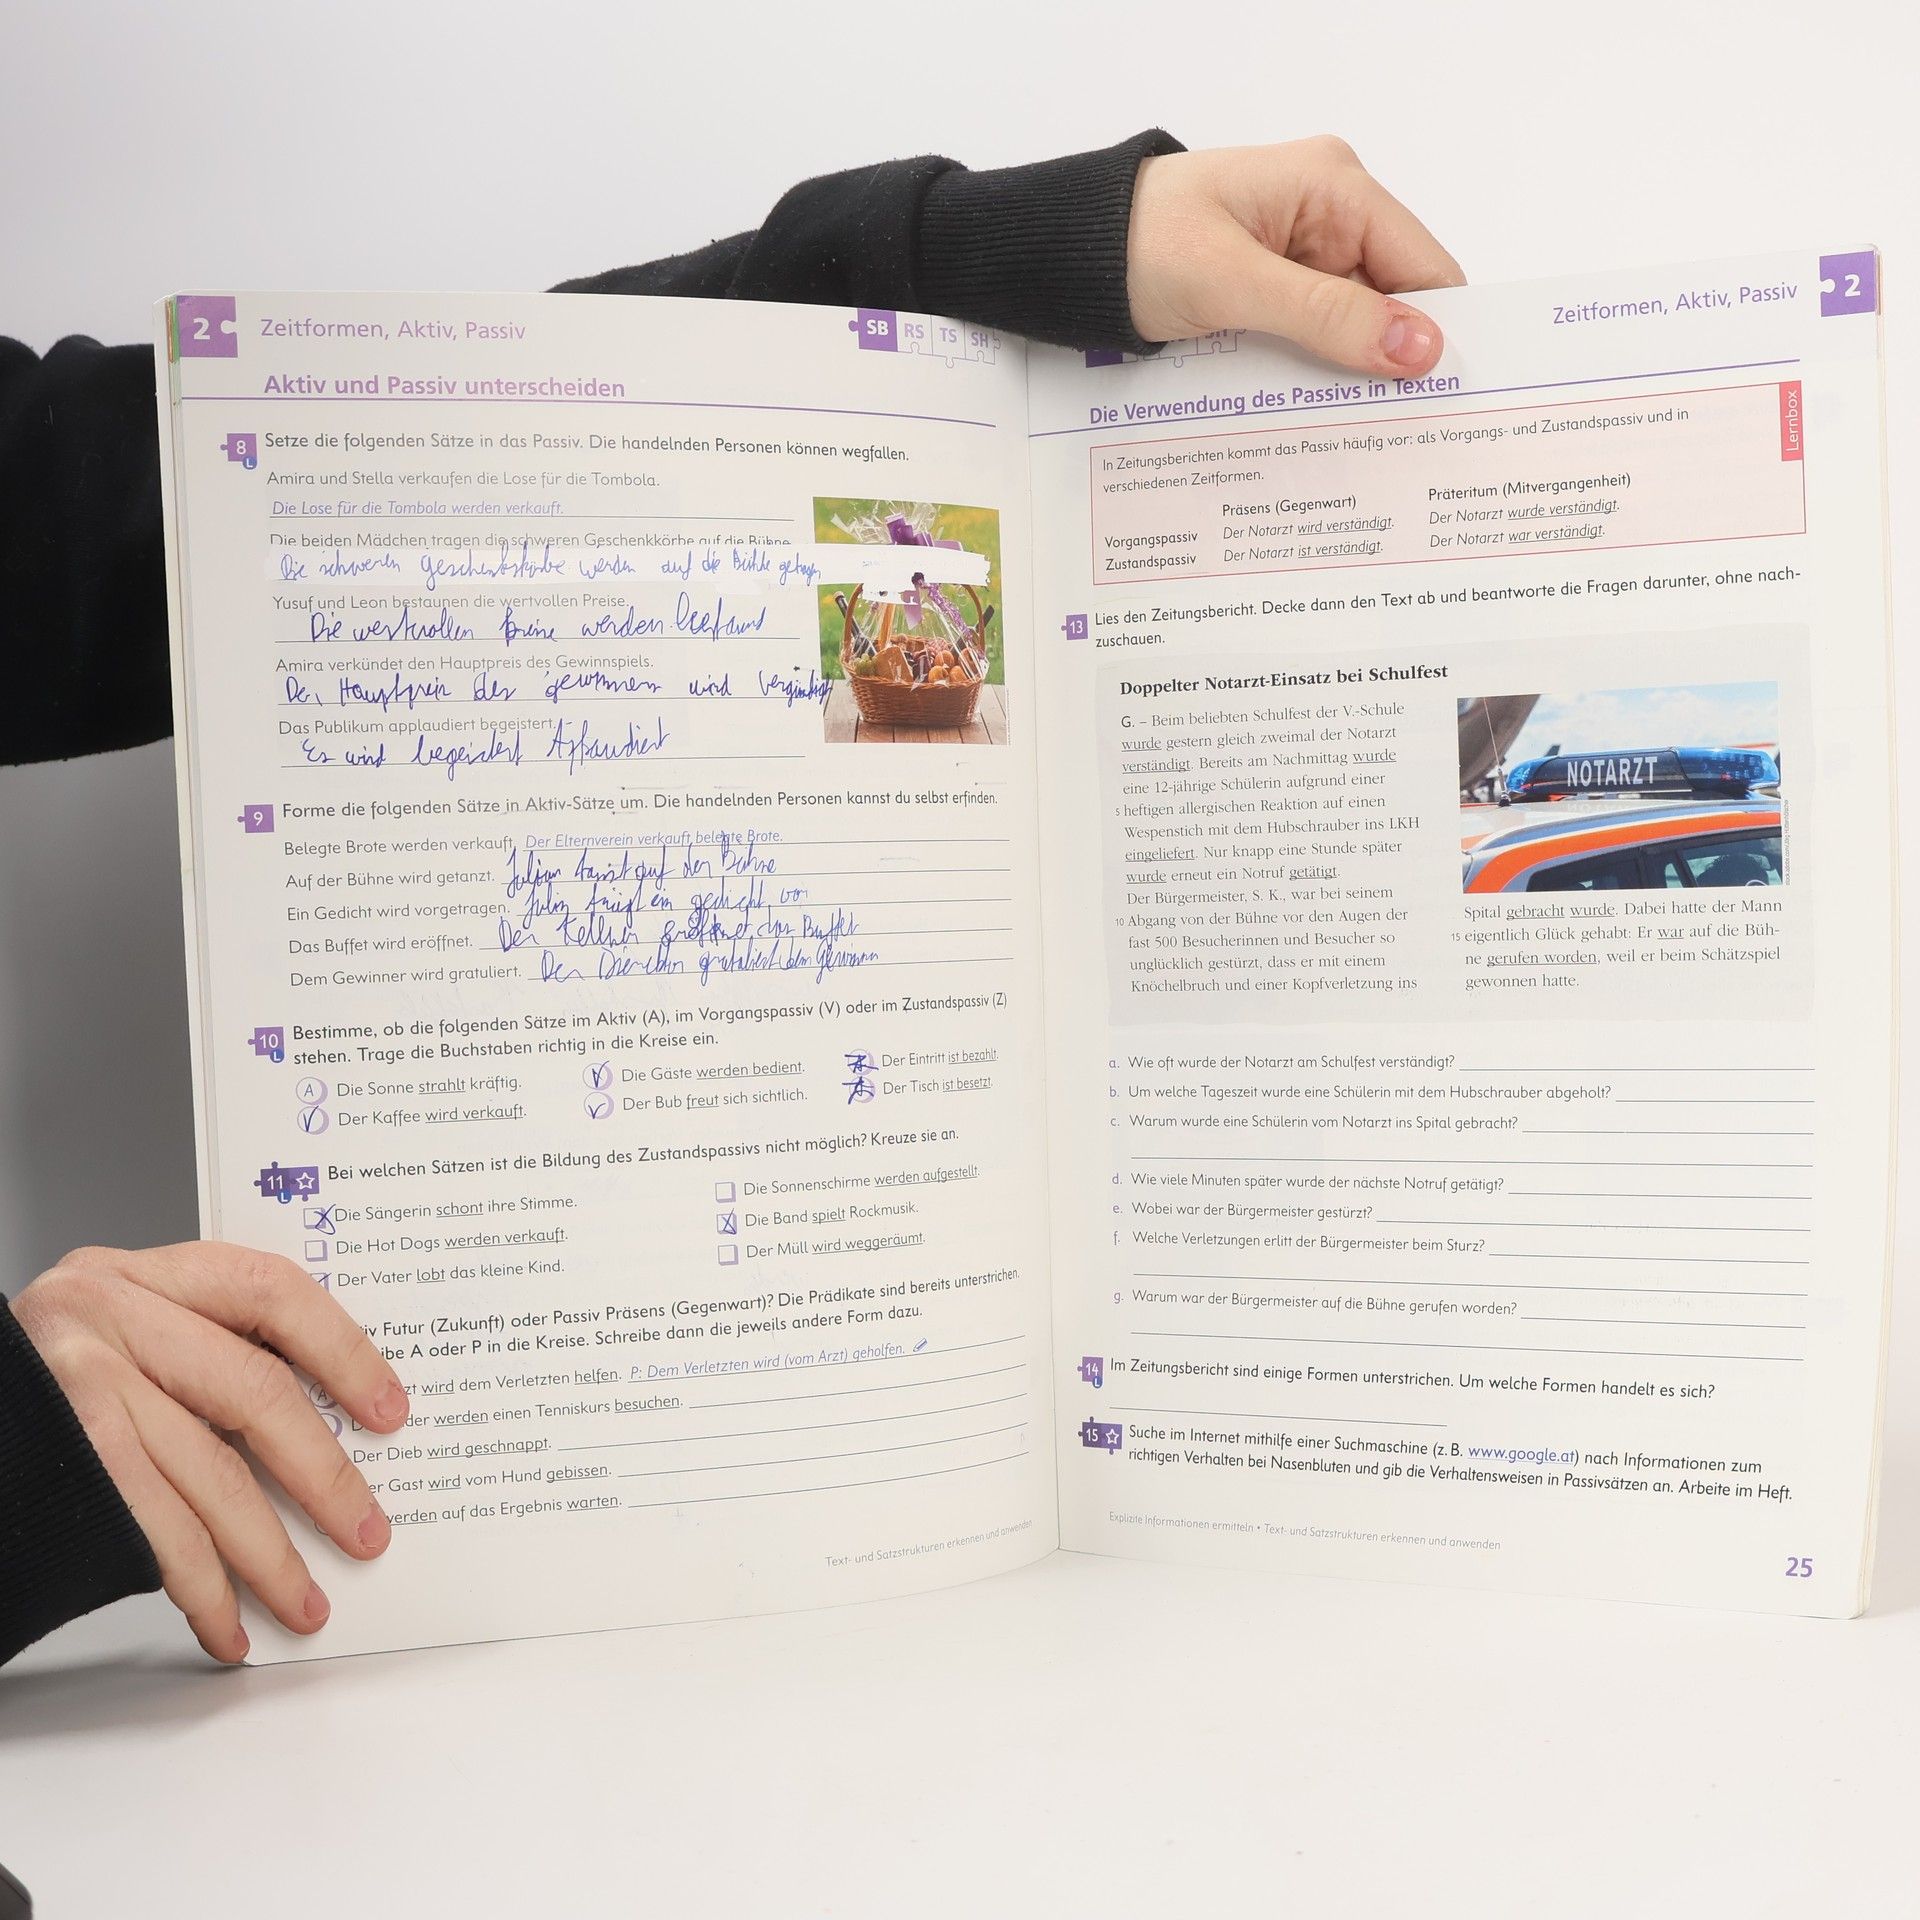 2 Zeitformen, Aktiv, Passiv
SB RS TS SH
Aktiv und Passiv unterscheiden
8 Setze die folgenden Sätze in das Passiv. Die handelnden Personen können wegfallen.
L
Amira und Stella verkaufen die Lose für die Tombola.
Die Lose für die Tombola werden verkauft.
Die beiden Mädchen tragen die schweren Geschenkkörbe auf die Bühne
Die schweren Geschenkskörbe werden auf die Bühne getragen
Yusuf und Leon bestaunen die wertvollen Preise.
Die wertvollen werden
Amira verkündet den Hauptpreis des Gewinnspiels.
Der Hauptpreis des wird
Das Publikum applaudiert begeistert.
Es wird begeistert Applaudiert
9 Forme die folgenden Sätze in Aktiv-Sätze um. Die handelnden Personen kannst du selbst erfinden.
Belegte Brote werden verkauft. Der Elternverein verkauft belegte Brote.
Auf der Bühne wird getanzt. Julian tanzt auf der Bühne
Ein Gedicht wird vorgetragen. ein gedicht vor
Das Buffet wird eröffnet. Der Kellner eröffnet das Buffet
Dem Gewinner wird gratuliert. Der gratuliert dem
10 Bestimme, ob die folgenden Sätze im Aktiv (A), im Vorgangspassiv (V) oder im Zustandspassiv (Z)
L stehen. Trage die Buchstaben richtig in die Kreise ein.
A Die Sonne strahlt kräftig. V Die Gäste werden bedient. Der Eintritt ist bezahlt.
V Der Kaffee wird verkauft. V Der Bub freut sich sichtlich. Der Tisch ist besetzt.
11 Bei welchen Sätzen ist die Bildung des Zustandspassivs nicht möglich? Kreuze sie an.
L
Die Sängerin schont ihre Stimme. Die Sonnenschirme werden aufgestellt.
Die Hot Dogs werden verkauft. Die Band spielt Rockmusik.
Der Vater lobt das kleine Kind. Der Müll wird weggeräumt.
iv Futur (Zukunft) oder Passiv Präsens (Gegenwart)? Die Prädikate sind bereits unterstrichen.
ibe A oder P in die Kreise. Schreibe dann die jeweils andere Form dazu.
A zt wird dem Verletzten helfen. P: Dem Verletzten wird (vom Arzt) geholfen.
der werden einen Tenniskurs besuchen.
Der Dieb wird geschnappt.
er Gast wird vom Hund gebissen.
werden auf das Ergebnis warten.
Text- und Satzstrukturen erkennen und anwenden
Zeitformen, Aktiv, Passiv 2
Die Verwendung des Passivs in Texten
Lernbox
In Zeitungsberichten kommt das Passiv häufig vor: als Vorgangs- und Zustandspassiv und in
verschiedenen Zeitformen.
Präsens (Gegenwart) Präteritum (Mitvergangenheit)
Vorgangspassiv Der Notarzt wird verständigt. Der Notarzt wurde verständigt.
Zustandspassiv Der Notarzt ist verständigt. Der Notarzt war verständigt.
13 Lies den Zeitungsbericht. Decke dann den Text ab und beantworte die Fragen darunter, ohne nach-
zuschauen.
Doppelter Notarzt-Einsatz bei Schulfest
G. – Beim beliebten Schulfest der V.-Schule
wurde gestern gleich zweimal der Notarzt
verständigt. Bereits am Nachmittag wurde
eine 12-jährige Schülerin aufgrund einer
5 heftigen allergischen Reaktion auf einen
Wespenstich mit dem Hubschrauber ins LKH
eingeliefert. Nur knapp eine Stunde später
wurde erneut ein Notruf getätigt.
Der Bürgermeister, S. K., war bei seinem
10 Abgang von der Bühne vor den Augen der
fast 500 Besucherinnen und Besucher so
unglücklich gestürzt, dass er mit einem
Knöchelbruch und einer Kopfverletzung ins
NOTARZT
Spital gebracht wurde. Dabei hatte der Mann
15 eigentlich Glück gehabt: Er war auf die Büh-
ne gerufen worden, weil er beim Schätzspiel
gewonnen hatte.
a. Wie oft wurde der Notarzt am Schulfest verständigt?
b. Um welche Tageszeit wurde eine Schülerin mit dem Hubschrauber abgeholt?
c. Warum wurde eine Schülerin vom Notarzt ins Spital gebracht?
d. Wie viele Minuten später wurde der nächste Notruf getätigt?
e. Wobei war der Bürgermeister gestürzt?
f. Welche Verletzungen erlitt der Bürgermeister beim Sturz?
g. Warum war der Bürgermeister auf die Bühne gerufen worden?
14 Im Zeitungsbericht sind einige Formen unterstrichen. Um welche Formen handelt es sich?
L
15 Suche im Internet mithilfe einer Suchmaschine (z. B. www.google.at) nach Informationen zum
richtigen Verhalten bei Nasenbluten und gib die Verhaltensweisen in Passivsätzen an. Arbeite im Heft.
Explizite Informationen ermitteln • Text- und Satzstrukturen erkennen und anwenden
25